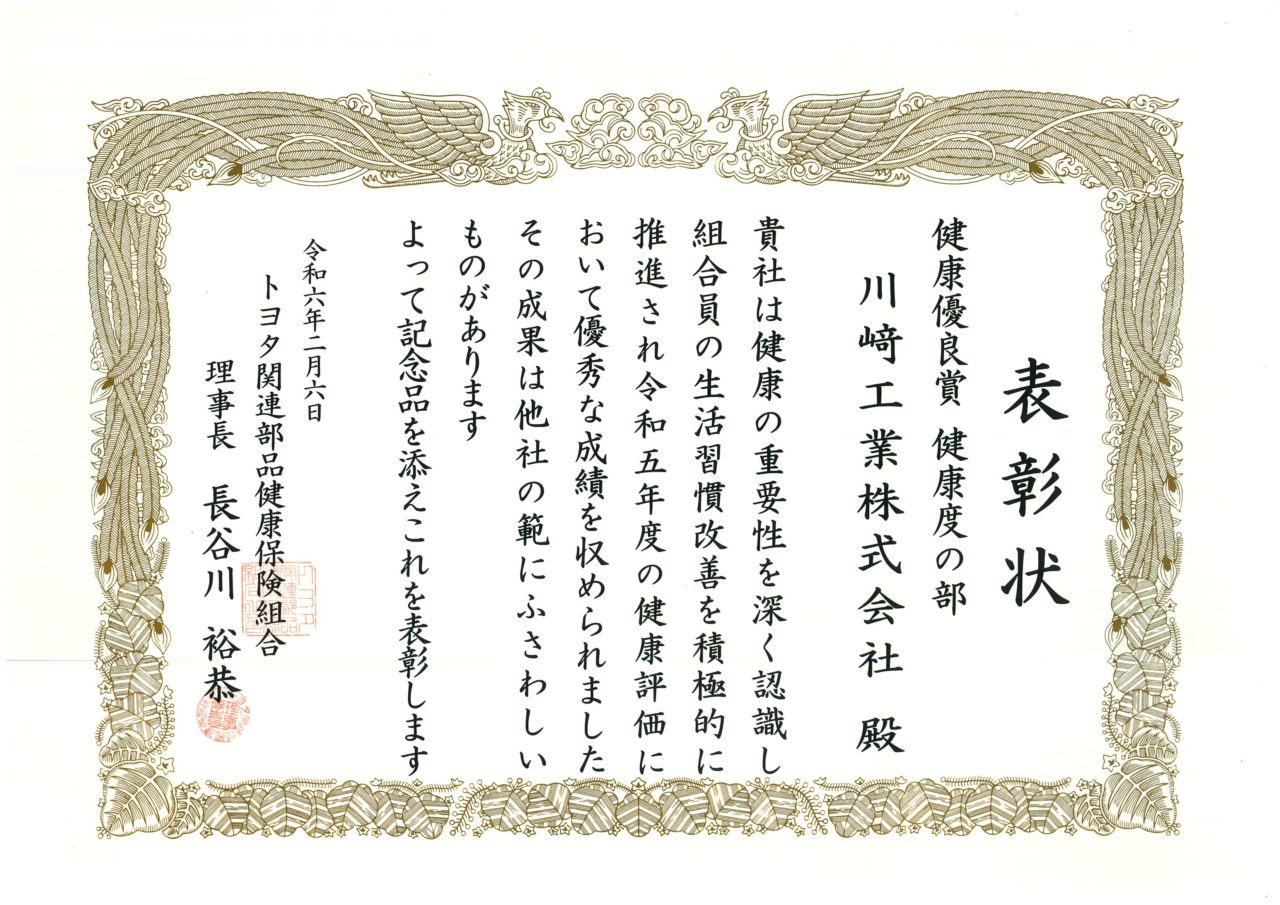 表彰状
健康優良賞 健康度の部
川﨑工業株式会社 殿
貴社は健康の重要性を深く認識し
組合員の生活習慣改善を積極的に
推進され令和五年度の健康評価に
おいて優秀な成績を収められました
その成果は他社の範にふさわしい
ものがあります
よって記念品を添えこれを表彰します
令和六年二月六日
トヨタ関連部品健康保険組合
理事長 長谷川 裕恭